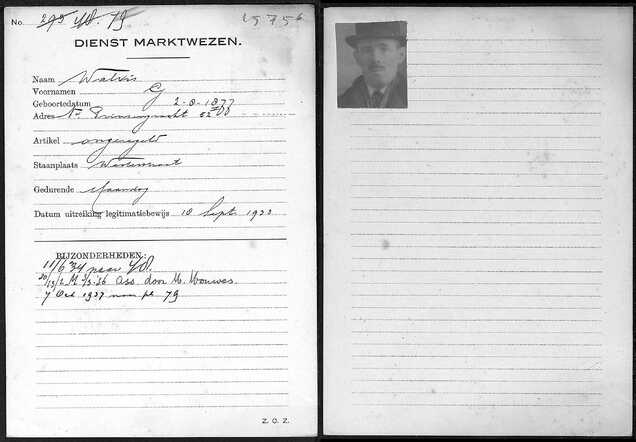 No. 293 40. 79 1575⁶
DIENST MARKTWEZEN.
Naam Walvis
Voornamen G
Geboortedatum 2-8-1877
Adres Nw Prinsengracht 52
Artikel ongeregeld
Staanplaats Westerstraat
Gedurende Maandag
Datum uitreiking legitimatiebewijs 18 Sept. 1933
BIJZONDERHEDEN:
11/6 '34 naar 40.
Ass. door M. Mouwes.
7 Oct 1937 naar pl 79
Z. O. Z.